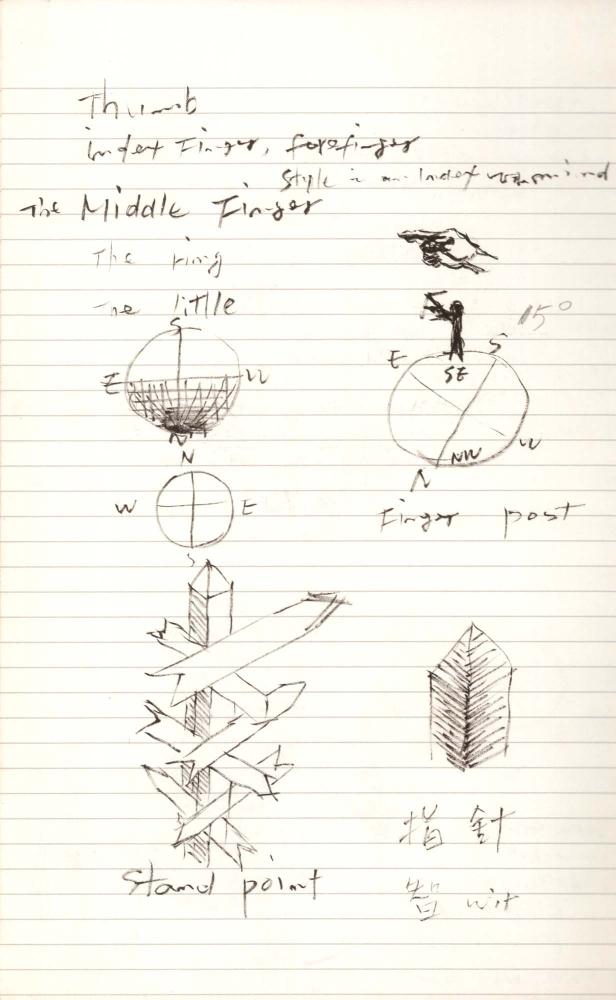 Thumb
index Finger, forefinger
Style is an Index
The Middle Finger
The ring
The little
15°
S
E W
N
E S
SE
NW W
N
Finger post
N
W E
S
Stand point
指針
智 wit